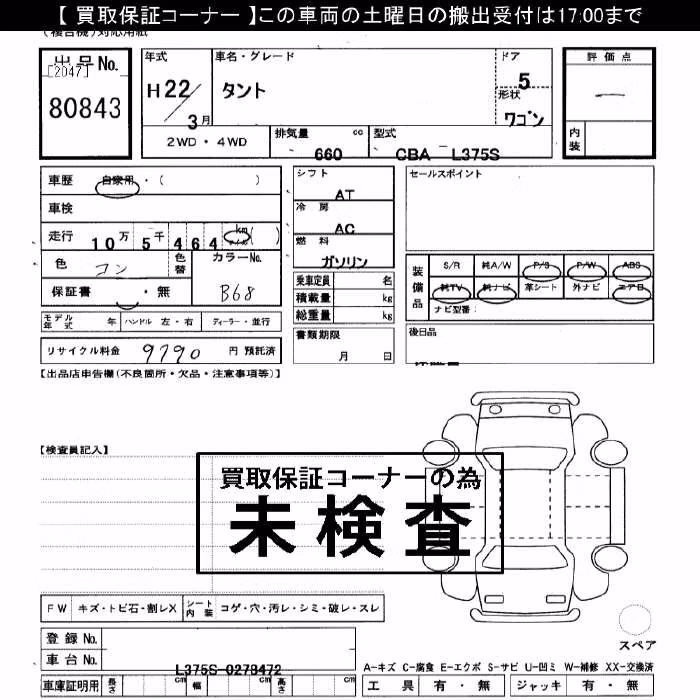 【 買取保証コーナー 】この車両の土曜日の搬出受付は17:00まで
(複合機)対応用紙
出品No.
[2047]
80843
年式
H22/3月
車名・グレード
タント
ドア
5
形状
ワゴン
評価点
―
内装
2WD・4WD
排気量 cc
660
型式
CBA L375S
車歴 自家用・( )
車検
走行 10万5千464 km ( )
色 コン
色替
カラーNo.
B68
保証書 ・無
モデル年式 年
ハンドル 左・右
ディーラー・並行
リサイクル料金 9790 円 預託済
シフト
AT
冷房
AC
燃料
ガソリン
乗車定員 名
積載量 kg
総重量 kg
書類期限
月 日
セールスポイント
装備品
S/R 純A/W P/S P/W ABS
純TV 純ナビ 革シート 外ナビ エアB
ナビ型番:
後日品
【出品店申告欄(不良箇所・欠品・注意事項等)】
【検査員記入】
買取保証コーナーの為
未検査
FW キズ・トビ石・割レX
シート内装 コゲ・穴・汚レ・シミ・破レ・スレ
登録No.
車台No.
L375S-0278472
車庫証明用 長さ cm 幅 cm 高さ cm
スペア
A-キズ C-腐食 E-エクボ S-サビ U-凹ミ W-補修 XX-交換済
工具 有・無
ジャッキ 有・無